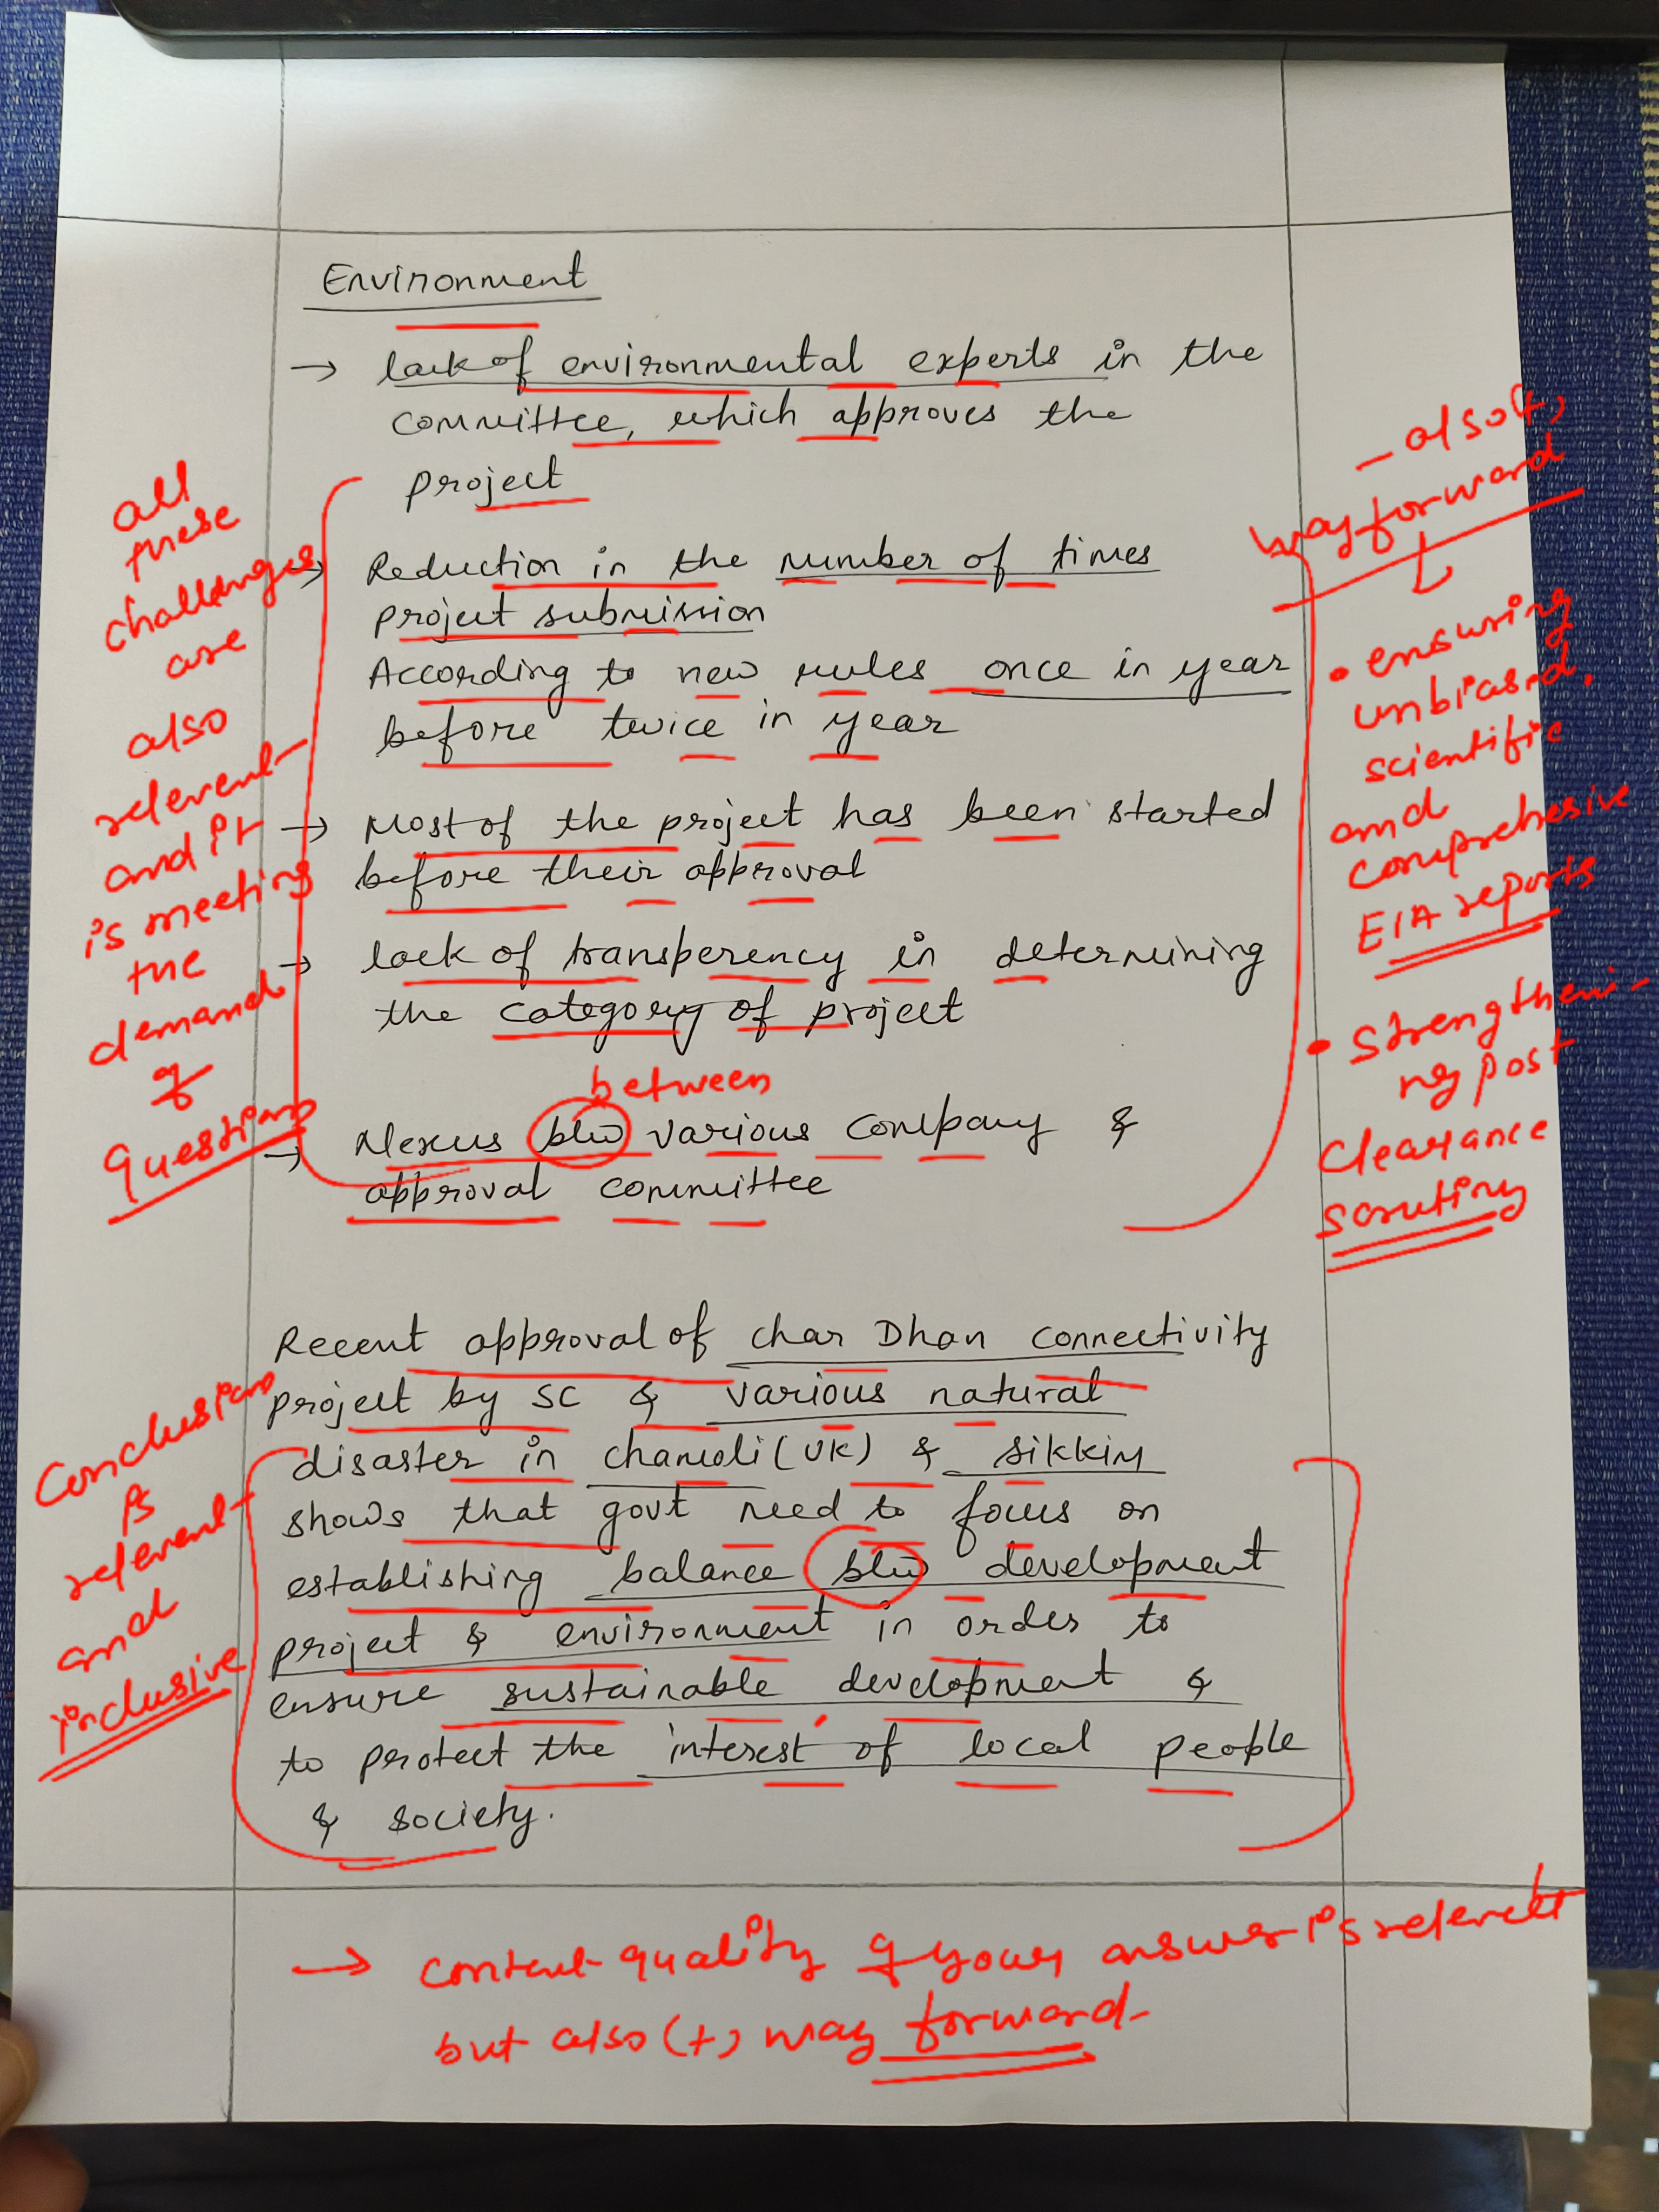 Environment
→ lack of environmental experts in the
committee, which approves the
project
→ Reduction in the number of times
project submission
According to new rules once in year
before twice in year
→ Most of the project has been started
before their approval
→ lack of transperency in determining
the category of project
between
→ Nexus b/w various company &
approval committee
Recent approval of char Dham connectivity
project by SC & various natural
disaster in chamoli (UK) & sikkim
shows that govt need to focus on
establishing balance b/w development
project & environment in order to
ensure sustainable development &
to protect the interest of local people
& society.
all
these
challenges
are
also
relevent
and it
is meeting
the
demand
of
question
Conclusion
is
relevent
and
inclusive
- also (+)
way forward
• ensuring
unbiased,
scientific
and
comprehesive
EIA reports
• Strengtheni-
ng post
Clearance
scrutiny
→ content quality of your answer is relevent
but also (+) way forward